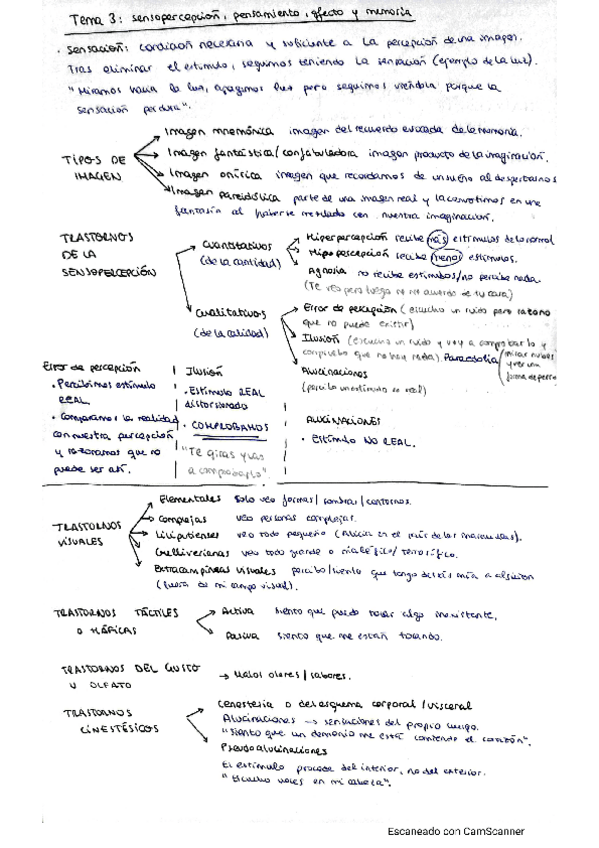 Tema 3: sensopercepción, pensamiento, afecto y memoria
· Sensación: condición necesaria y suficiente a la percepción de una imagen.
Tras eliminar el estímulo, seguimos teniendo la sensación (ejemplo de la luz).
"Miramos hacia la luz, apagamos luz pero seguimos viéndola porque la
sensación perdura".
TIPOS DE IMAGEN
Imagen mnemónica imagen del recuerdo evocada de la memoria.
Imagen fantástica/confabuladora imagen producto de la imaginación.
Imagen onírica imagen que recordamos de un sueño al despertarnos
Imagen pareidólica parte de una imagen real y la convertimos en una
fantasía al haberse mezclado con nuestra imaginación.
TRASTORNOS DE LA SENSOPERCEPCIÓN
Cuantitativos (de la cantidad)
Hiperpercepción recibe más estímulos de lo normal
Hipopercepción recibe menos estímulos.
Agnosia no recibe estímulos/no percibe nada
(Te veo pero luego no me acuerdo de tu cara)
Cualitativos (de la calidad)
Error de percepción (escucho un ruido pero razono
que no puede existir)
Ilusión (escucho un ruido y voy a comprobarlo y
compruebo que no hay nada). Pareidolia (mirar nubes
y ver una
forma de perro
Alucinaciones
(percibo un estímulo no real)
Error de percepción
· Percibimos estímulo
REAL
· Comparamos la realidad
con nuestra percepción
y razonamos que no
puede ser así.
Ilusión
· Estímulo REAL
distorsionado
· COMPROBAMOS
"Te giras y vas
a comprobarlo"
ALUCINACIONES
· Estímulo NO REAL.
TRASTORNOS VISUALES
Elementales solo veo formas/sombras/contornos.
Complejas veo personas complejas.
Liliputienses veo todo pequeño (Alicia en el país de las maravillas).
Gulliverianas veo todo grande o maléfico/terrorífico.
Extracampineas visuales percibo/siento que tengo detrás mía a alguien
(fuera de mi campo visual).
TRASTORNOS TÁCTILES
O HÁPICAS
Activa siento que puedo tocar algo inexistente.
Pasiva siento que me están tocando.
TRASTORNOS DEL GUSTO
U OLFATO → Malos olores/sabores.
TRASTORNOS
CINESTÉSICOS
Cenestesia o del esquema corporal/visceral
Alucinaciones → sensaciones del propio cuerpo.
"Siento que un demonio me está comiendo el corazón".
Pseudoalucinaciones
El estímulo procede del interior, no del exterior.
"Escucho voces en mi cabeza".
Escaneado con CamScanner